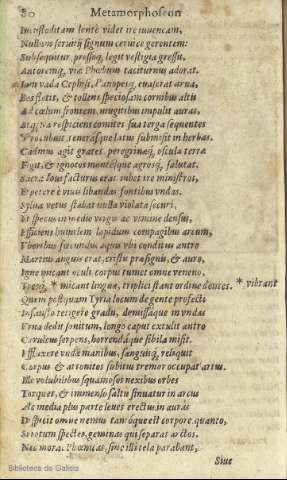 80 Metamorphoseon
Incustoditam lentè videt ire iuuencam,
Nullum seruitij signum ceruice gerentem:
Subsequitur, pressoq́; legit vestigia gressu,
Autoremq́; viæ Phœbum taciturnus adorat.
Iam vada Cephisi, Panopesq́; euaserat arua,
Bos stetit, & tollens speciosam cornibus altis
Ad cœlum frontem, mugitibus impulit auras,
Atq́; ita respiciens comites sua terga sequentes
Procubuit, teneraq́; latus submisit in herbas.
Cadmus agit grates, peregrinæq́; oscula terræ
Figit, & ignotos montes agrosq́; salutat.
Sacra Ioui facturus erat: iubet ire ministros,
Et petere è viuis libandas fontibus vndas.
Sylua vetus stabat nulla violata securi,
Et specus in medio virgis ac vimine densus,
Efficiens humilem lapidum compagibus arcum,
Vberibus fœcundus aquis vbi conditus antro
Martius anguis erat, cristis præsignis, & auro,
Igne micant oculi, corpus tumet omne veneno.
Tresq́; * micant linguæ, triplici stant ordine dentes. * vibrant
Quem postquam Tyria lucum de gente profecti
Infausto tetigere gradu, demissaque in vndas
Vrna dedit sonitum, longo caput extulit antro
Cæruleus serpens, horrendaque sibila misit.
Effluxere vrnæ manibus, sanguisq́; reliquit
Corpus & attonitos subitus tremor occupat artus.
Ille volubilibus squamosos nexibus orbes
Torquet, & immenso saltu sinuatur in arcus
Ac media plus parte leues erectus in auras
Despicit omne nemus tantóque est corpore, quanto,
Si totum spectes, geminas qui separat arctos.
Nec mora, Phœnicas, siue illi tela parabant,
Siue
Biblioteca de Galicia